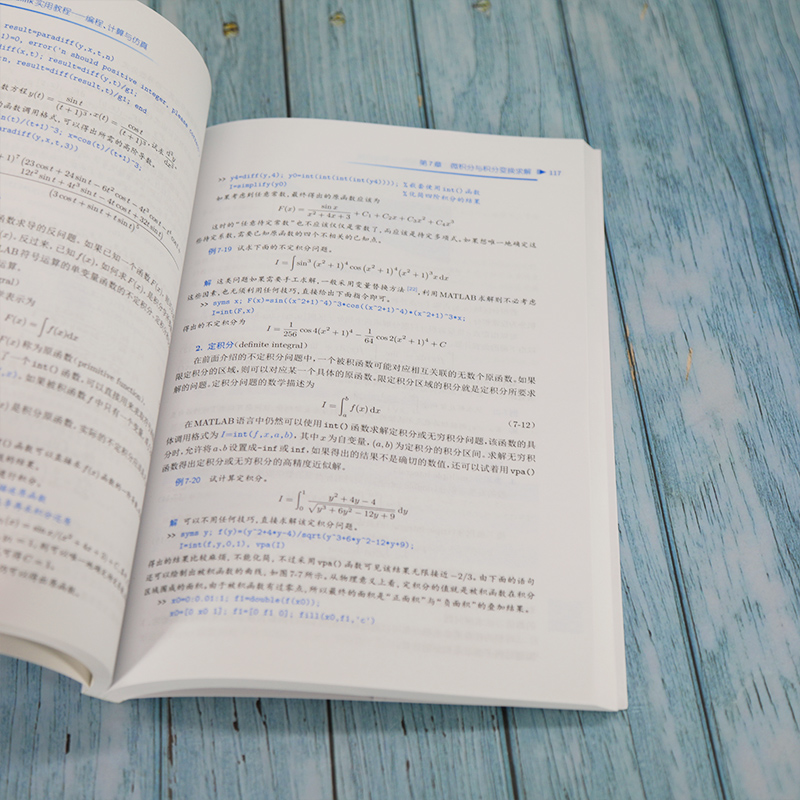 ink 实用教程——编程、计算与仿真
result=paradiff(y,x,t,n)
)=0, error('n should positive integer, please
diff(x,t); result=diff(y,t)/g1;
n, result=diff(result,t)/g1; end
数方程 y(t) = sin t / (t+1)^3, x(t) = cos t / (t+1)^3, 试求
函数调用格式，可以得出所需的高阶导数。
n(t)/(t+1)^3; x=cos(t)/(t+1)^3;
aradiff(y,x,t,3))
函数求导的反问题。如果已知一个函数
反过来，已知 f(x)，如何求 F(x)
AB 符号运算的单变量函数的不定积分
运算。
ral)
学表示为
F(x) = ∫ f(x)dx
F(x) 称为原函数(primitive function)。
了一个 int() 函数，可以直接用来
如果被积函数 f 中只有一个变量
第7章 微积分与积分变换求解 ▶ 117
>> y4=diff(y,4); y0=int(int(int(int(y4)))); %嵌套使用 int() 函数
I=simplify(y0) %化简四阶积分的结果
如果考虑到任意常数，最终得出的原函数应该为
F(x) = sin x / (x² + 4x + 3) + C₁ + C₂x + C₃x² + C₄x³
这时的“任意待定常数”也不应该仅仅是常数了，而应该是待定多项式。如果想唯一地确定这
些待定系数，需要已知原函数的四个不相关的已知点。
例7-19 试求下面的不定积分问题。
I = ∫ sin³ (x² + 1)⁴ cos (x² + 1)⁴ (x² + 1)³ x dx
解 这类问题如果需要手工求解，一般采用变量替换方法[22]。利用 MATLAB 求解则不必考虑
这些因素，也无须利用任何技巧，直接给出下面指令即可。
>> syms x; F(x)=sin((x^2+1)^4)^3*cos((x^2+1)^4)*(x^2+1)^3*x;
I=int(F,x)
得出的不定积分为
I = 1/256 cos 4(x² + 1)⁴ − 1/64 cos 2(x² + 1)⁴ + C
2. 定积分(definite integral)
在前面介绍的不定积分问题中，一个被积函数可能对应相互关联的无数个原函数。如果
限定积分的区域，则可以对应某一个具体的原函数。限定积分区域的积分就是定积分所要求
解的问题。定积分问题的数学描述为
I = ∫ₐᵇ f(x) dx (7-12)
在 MATLAB 语言中仍然可以使用 int() 函数求解定积分或无穷积分问题，该函数的具
体调用格式为 I=int(f,x,a,b)，其中 x 为自变量，(a,b) 为定积分的积分区间。求解无穷积
分时，允许将 a、b 设置成-inf 或 inf。如果得出的结果不是确切的数值，还可以试着用 vpa()
函数得出定积分或无穷积分的高精度近似解。
例7-20 试计算定积分。
I = ∫₀¹ (y² + 4y − 4) / √(y³ + 6y² − 12y + 9) dy
解 可以不用任何技巧，直接求解该定积分问题。
>> syms y; f(y)=(y^2+4*y-4)/sqrt(y^3+6*y^2-12*y+9);
I=int(f,y,0,1), vpa(I)
得出的结果比较麻烦，不能化简，不过采用 vpa() 函数可见该结果无限接近 −2/3。由下面的语句
还可以绘制出被积函数的曲线，如图7-7所示。从物理意义上看，定积分的值就是被积函数在积分
区域围成的面积。由于被积函数有过零点，所以最终的面积是“正面积”与“负面积”的叠加结果。
>> x0=0:0.01:1; f1=double(f(x0));
x0=[0 x0 1]; f1=[0 f1 0]; fill(x0,f1,'c')